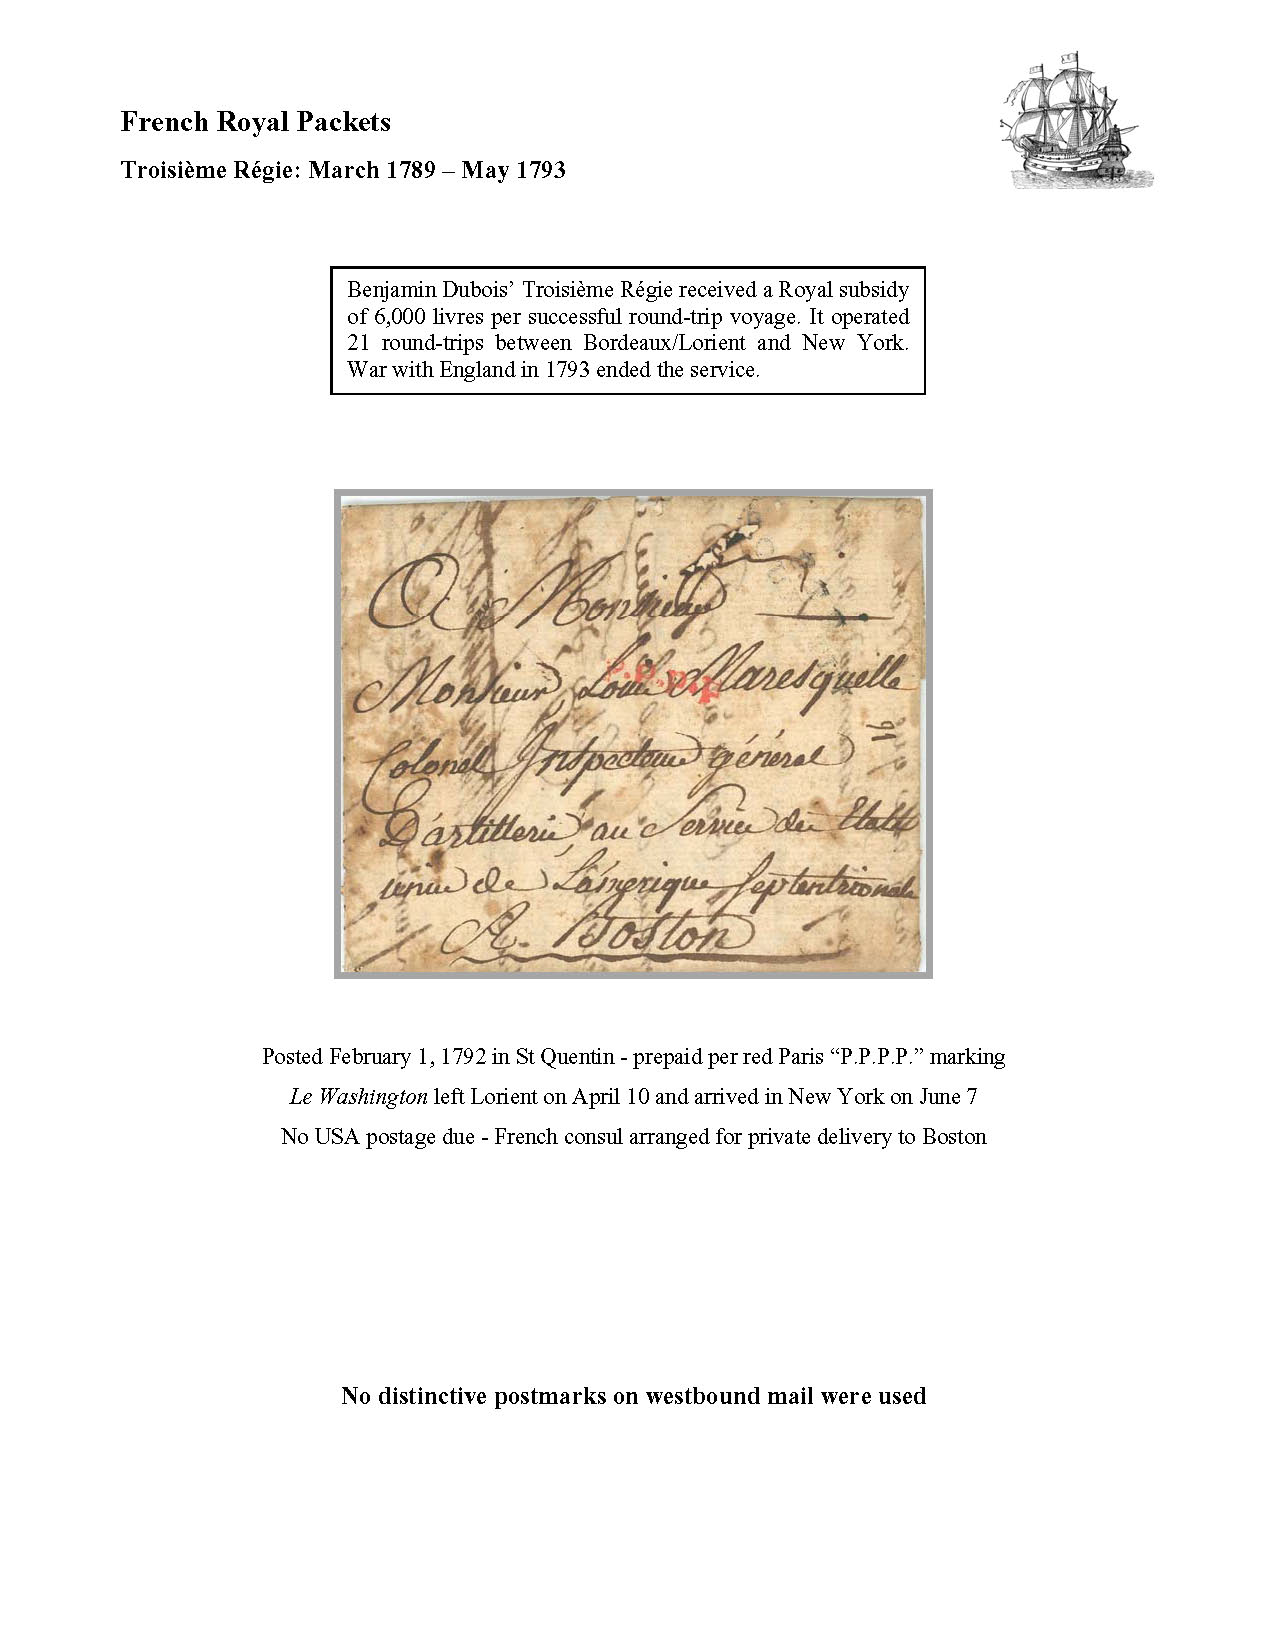 French Royal Packets
Troisième Régie: March 1789 – May 1793
Benjamin Dubois’ Troisième Régie received a Royal subsidy
of 6,000 livres per successful round-trip voyage. It operated
21 round-trips between Bordeaux/Lorient and New York.
War with England in 1793 ended the service.
A Monsieur
P.P.P.P
Monsieur Louis Maresquelle
Colonel Inspecteur général
D'artillerie au Service des Etats
unie de L'amerique Septentrionale
A. Boston
Posted February 1, 1792 in St Quentin - prepaid per red Paris “P.P.P.P.” marking
Le Washington left Lorient on April 10 and arrived in New York on June 7
No USA postage due - French consul arranged for private delivery to Boston
No distinctive postmarks on westbound mail were used